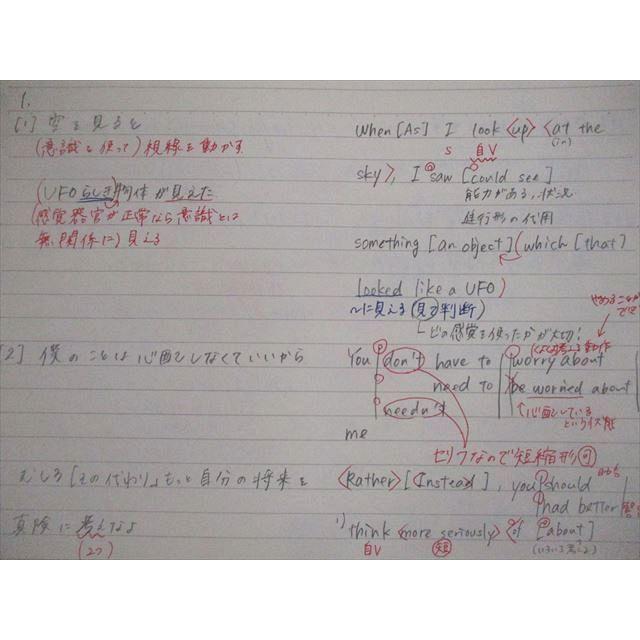 1.
[1] 空を見ると
When [As] I look <up> <at the
(in)
(意識を使って) 視線を動かす
S 自V
sky>, I saw [could see]
(UFOらしき)物体が見えた
能力がある, 状況
(感覚器官が正常なら意識とは
進行形の代用
無関係に) 見える
something [an object] (which [that]
looked like a UFO)
~に見える (見て判断)
どの感覚を使ったかが大切!
[2] 僕のことは心配しなくていいから
You don't have to worry about
need to be worried about
needn't
心配している
という状態
me
セリフなので短縮形可
むしろ [その代わり], もっと自分の将来を
<Rather> [Instead], you should
had better
真険に考えなよ
think <more seriously> <of [about]
(2つ)
自V 短